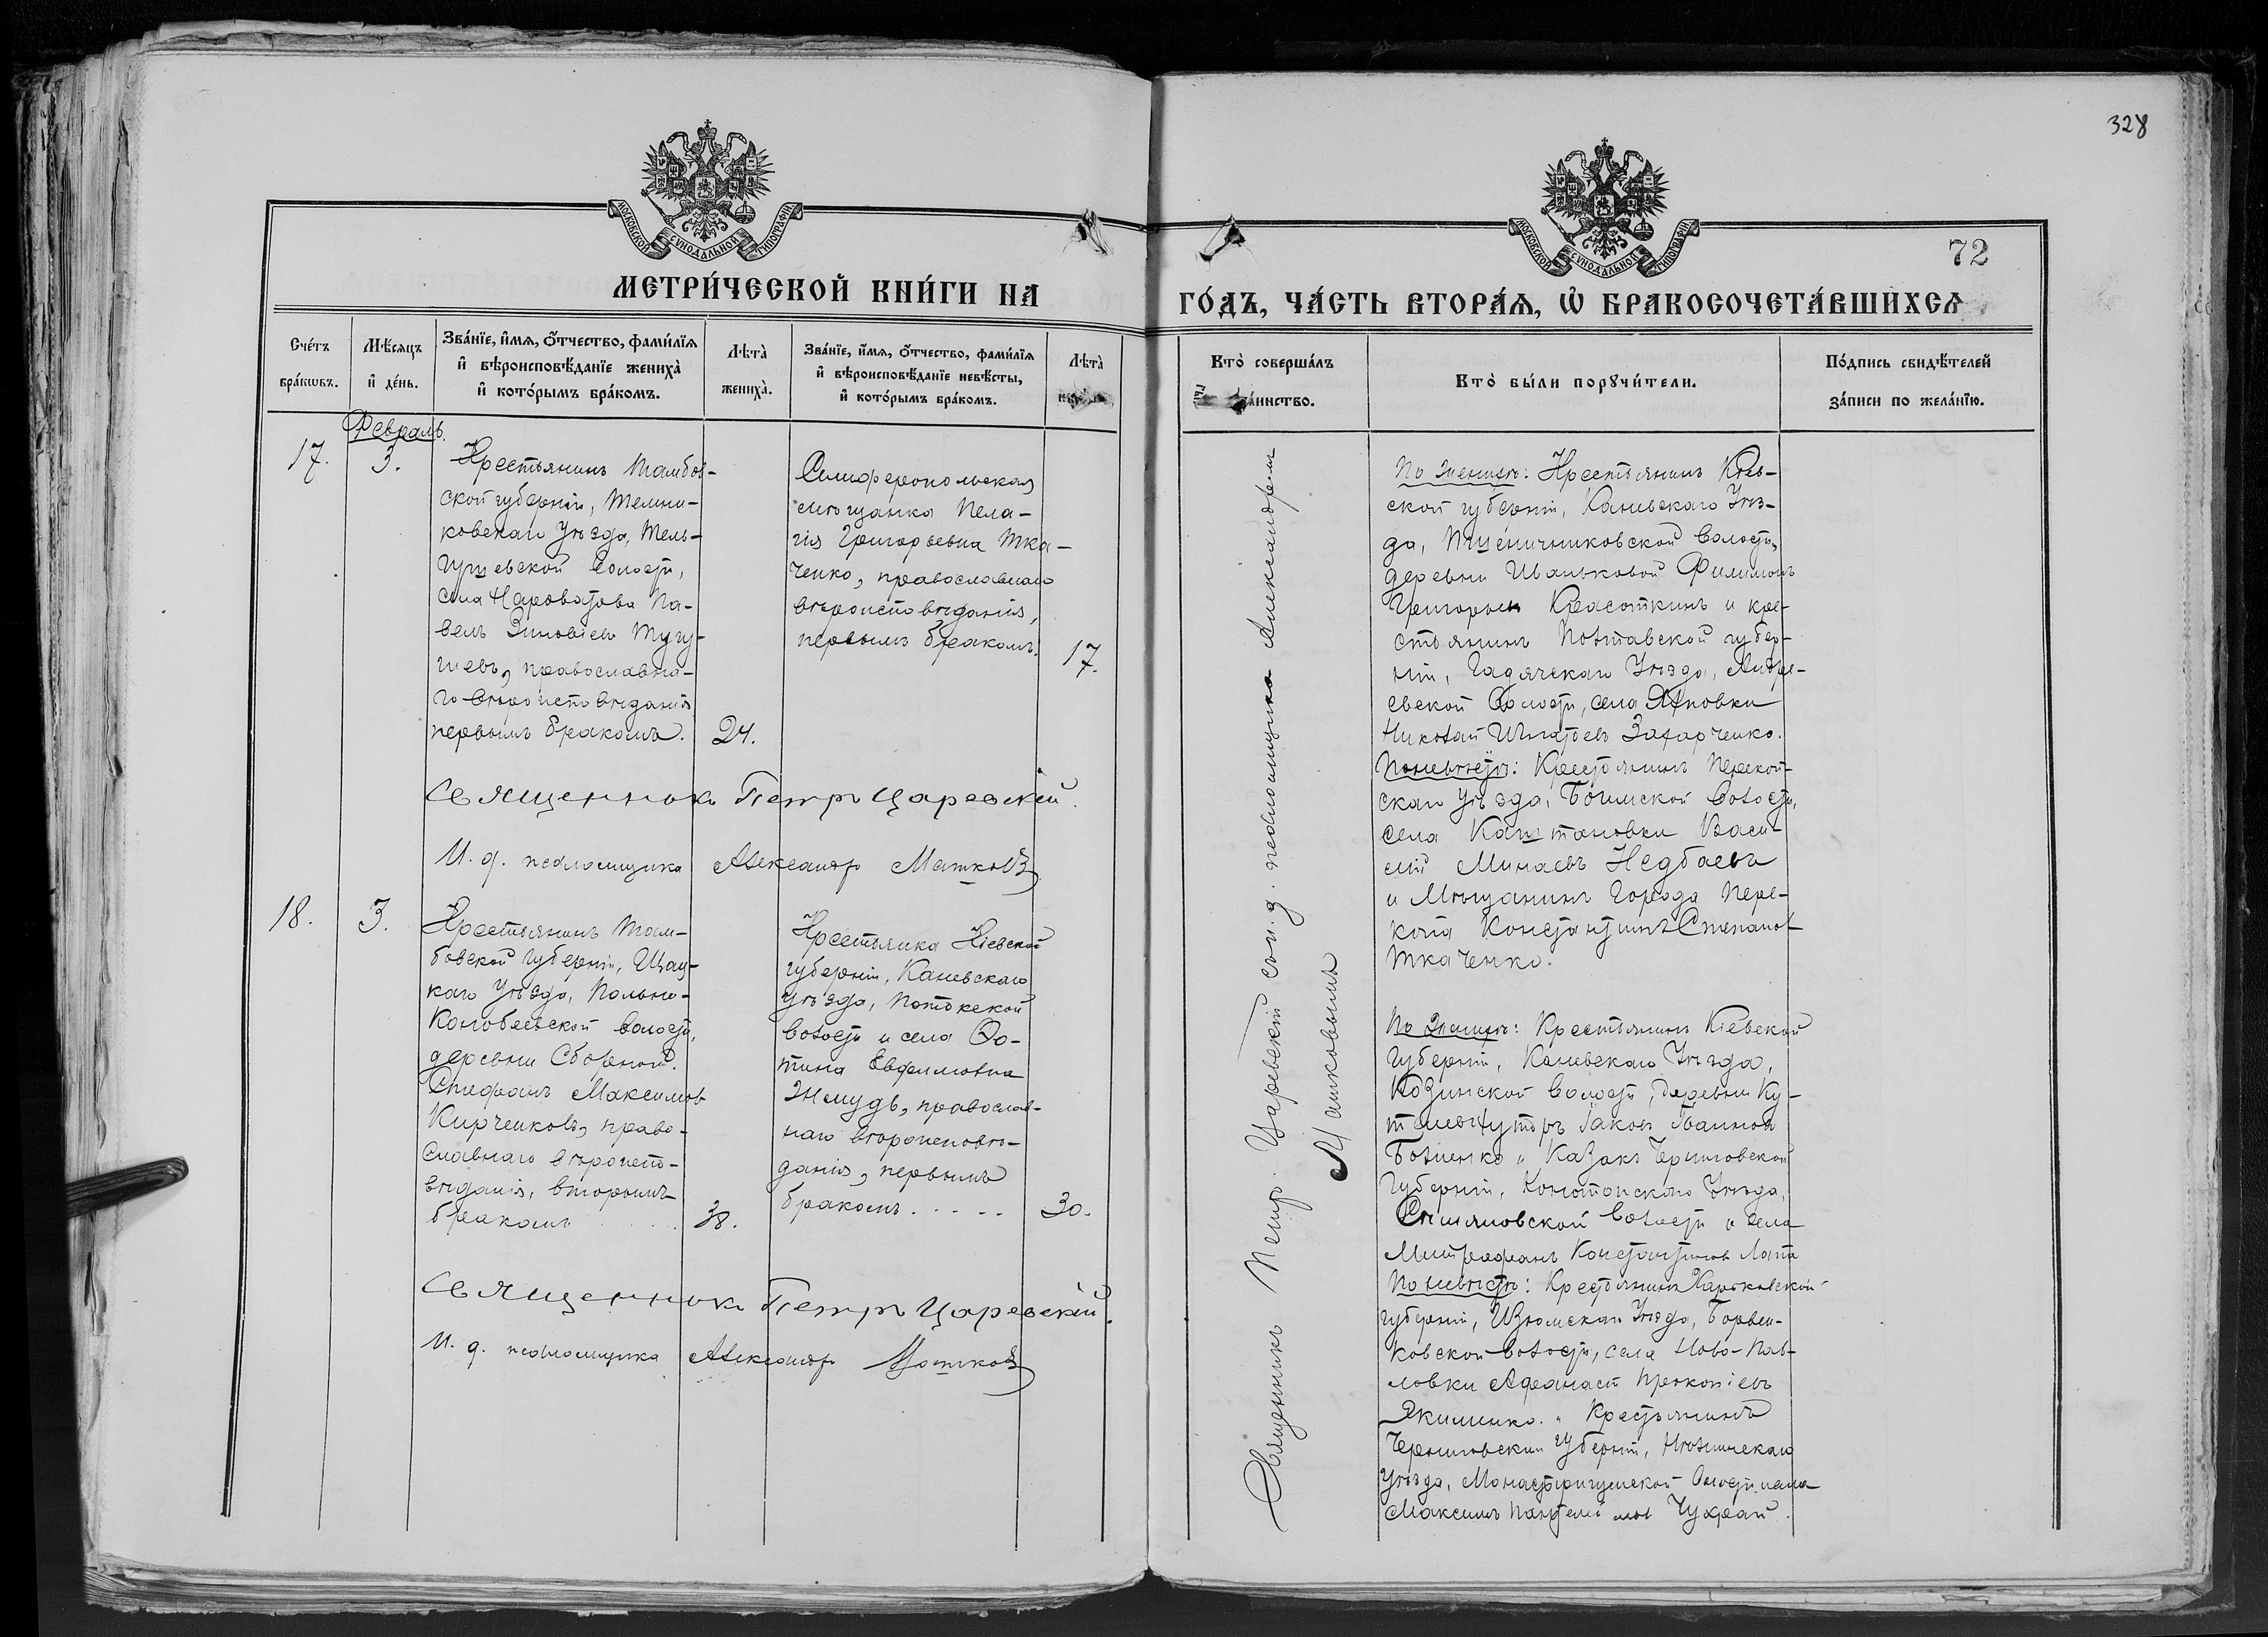 328
72
МОСКОВСКОЙ СѴНОДАЛЬНОЙ ТИПОГРАФІИ
МОСКОВСКОЙ СѴНОДАЛЬНОЙ ТИПОГРАФІИ
МЕТРИ́ЧЕСКОЙ КНИ́ГИ НА
ГО́ДЪ, ЧА́СТЬ ВТОРА́Я, Ѡ БРАКОСОЧЕТА́ВШИХСЯ
Сче́тъ
бра́кѡвъ.
Мѣ́сяцъ
и҆ де́нь.
Зва́нїе, и҆́мя, о҆́тчество, фами́лїя
и҆ вѣроисповѣ́данїе жениха̀
и҆ кото́рымъ бра́комъ.
Лѣта̀
жениха̀.
Зва́нїе, и҆́мя, о҆́тчество, фами́лїя
и҆ вѣроисповѣ́данїе невѣ́сты,
и҆ кото́рымъ бра́комъ.
Лѣта̀
Кто̀ соверша́лъ
а́инство.
Кто̀ бы́ли порꙋчи́тели.
По́дпись свидѣ́телей
за́писи по жела́нїю.
Февраль.
17.
3.
Крестьянинъ Тамбов-
ской губерніи, Темни-
ковскаго уѣзда, Тень-
гушевской волости,
села Нароватова Па-
велъ Зиновіевъ Тугу-
шевъ, православна-
го вѣроисповѣданія
первымъ бракомъ.
24.
Симферопольская
мѣщанка Пела-
гія Григорьевна Тка-
ченко, православнаго
вѣроисповѣданія,
первымъ бракомъ.
17.
Священникъ Петръ Царевскій.
И. д. псаломщика Александръ Матковъ
18.
3.
Крестьянинъ Там-
бовской губерніи, Шац-
каго уѣзда, Польно-
Конобеевской волости,
деревни Сборной.
Стефанъ Максимовъ
Кирченковъ, право-
славнаго вѣроиспо-
вѣданія, вторымъ
бракомъ
38.
Крестьянка Кіевской
губерніи, Каневскаго
уѣзда, Потокской
волости и села Фо-
тина Евфимовна
Жмудь, православ-
наго вѣроисповѣ-
данія, первымъ
бракомъ.....
30.
Священникъ Петръ Царевскій.
И. д. псаломщика Александръ Матковъ
Священникъ Петръ Царевскій съ и. д. псаломщика Александромъ
Матковымъ
По женихѣ: Крестьянинъ Кіев-
ской губерніи, Каневскаго Уѣз-
да, Пшеничниковской волости,
деревни Иваньковой Филимонъ
Григорьевъ Красоткинъ и кре-
стьянинъ Полтавской губер-
ніи, Гадячскаго Уѣзда,
волости, села
Николай Игнатьевъ Захарченко.
По невѣстѣ: Крестьянинъ Перекоп-
скаго уѣзда, волости,
села Каштановки Васи-
лій Минаевъ Недбаевъ
и Мѣщанинъ Города Пере-
копа Константинъ Степановъ
Ткаченко.
По женихѣ: Крестьянинъ Кіевской
Губерніи, Каневскаго Уѣзда,
Козинской волости, деревни
Іаковъ Іоанновъ
и Казакъ Черниговской
Губерніи, Конотопскаго Уѣзда,
волости и села
Митрофанъ Константиновъ Лапа
По невѣстѣ: Крестьянинъ Харьковской
губерніи, Изюмскаго Уѣзда, Борвен-
ковской волости, села Ново-Пав-
ловки Аѳанасій Прокопіевъ
Якименко и Крестьянинъ
Черниговской Губерніи, Нѣжинскаго
Уѣзда, Монастырищенской волости и села
Максимъ Чухрай.